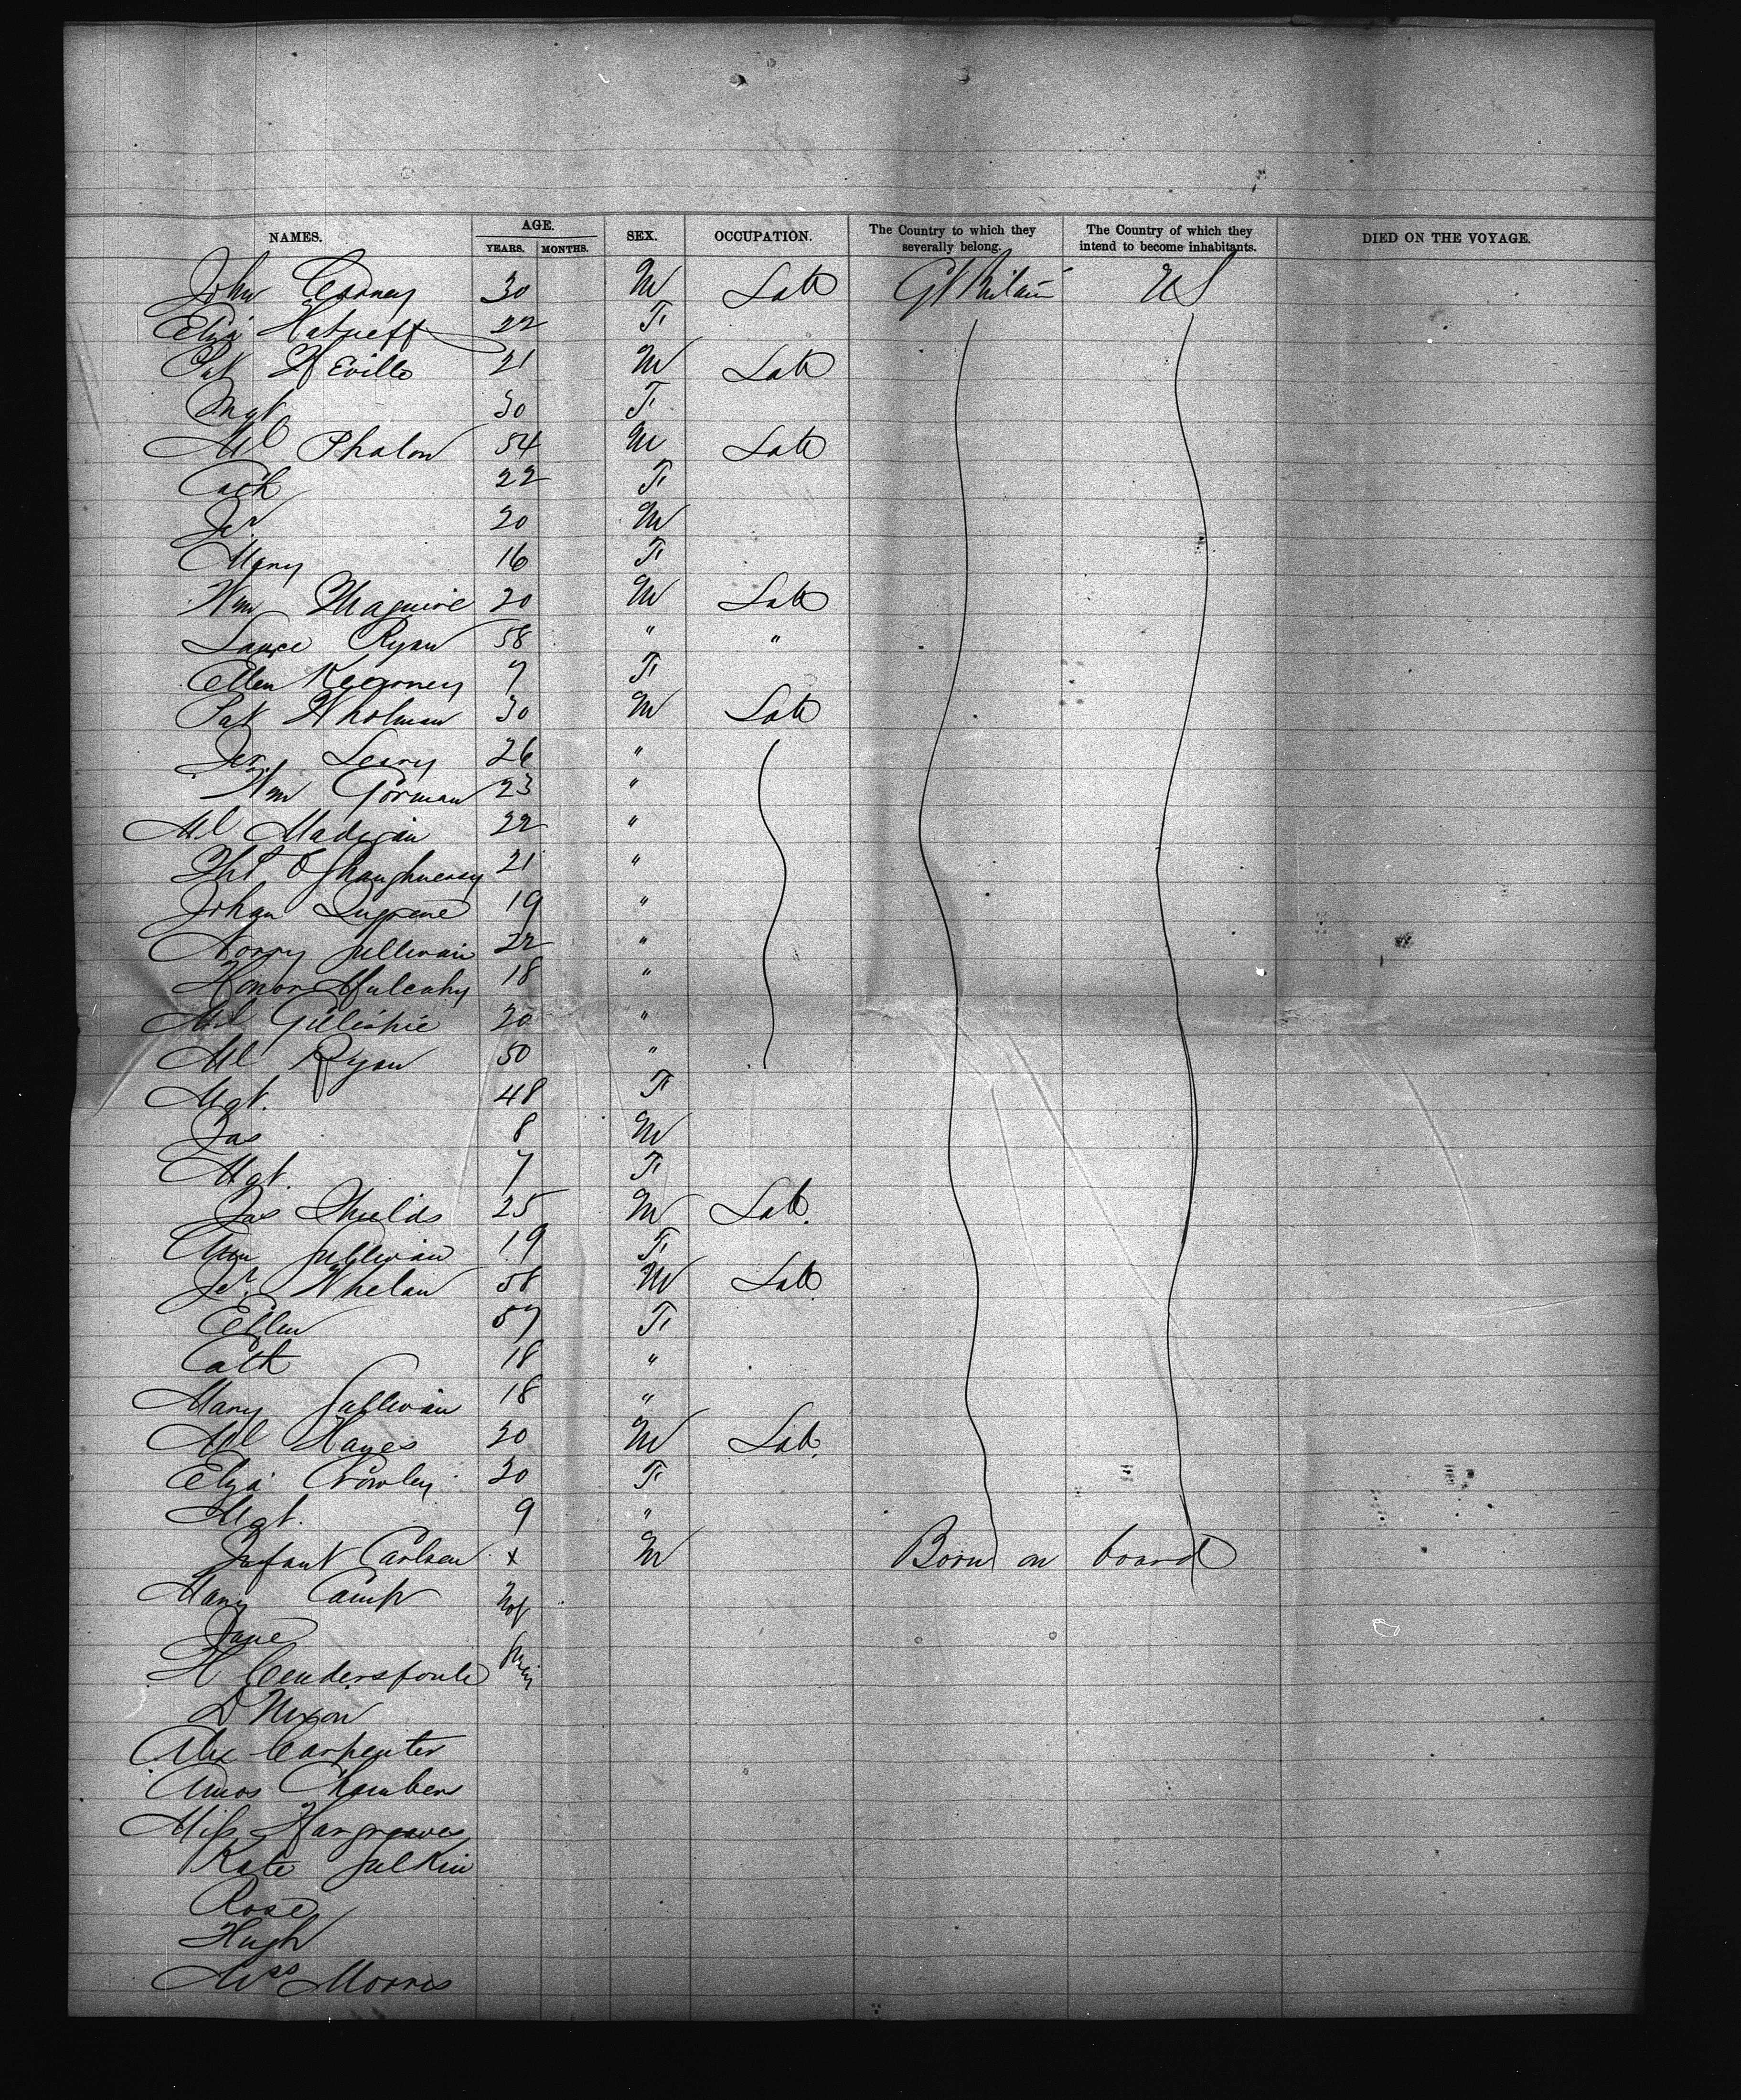 NAMES. AGE. YEARS. MONTHS. SEX. OCCUPATION. The Country to which they severally belong. The Country of which they intend to become inhabitants. DIED ON THE VOYAGE.
John 30 M Lab Gt Britain US
Eliz 22 F
Pat Neville 21 M Lab
Mgt 30 F
Ml Phalon 54 M Lab
Cath 22 F
Jer 20 M
Mary 16 F
Wm Maguire 20 M Lab
Lauce Ryan 58 " "
Ellen 7 F
Pat 30 M Lab
Jer Leary 26 "
Wm Gorman 23 "
Ml Madigan 22 "
Tht O'Shaughnessy 21 "
Johan 19 "
Norry Sullivan 22 "
Honor Mulcahy 18 "
Ml Gillispie 20 "
Ml Ryan 50 "
Mgt. 48 F
Jas 8 M
Mgt. 7 F
Jas Shields 25 M Lab.
Ann Sullivan 19 F
Jer. Whelan 58 M Lab
Ellen 57 F
Cath 18 "
Mary Sullivan 18 "
Ml Hayes 20 M Lab.
Eliza Crowley 30 F
Mgt. 9 "
Infant Carlson x M Born on board
Mary Camp Not
Jane
H
D Nixon
Alex Carpenter
Amos Chambers
Miss Hargreaves
Kate Sulkin
Rose
Hugh
Mrs Morris